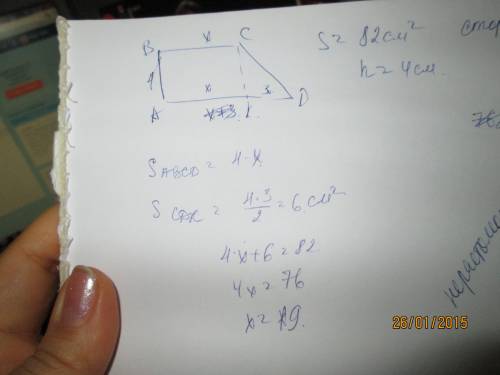 B x C
4
x 3
A K D
S = 82 см²
h = 4 см.
S ABCD = 4 · x
S CDK = 4·3/2 = 6 см²
4·x + 6 = 82
4x = 76
x = 19.
26/01/2015